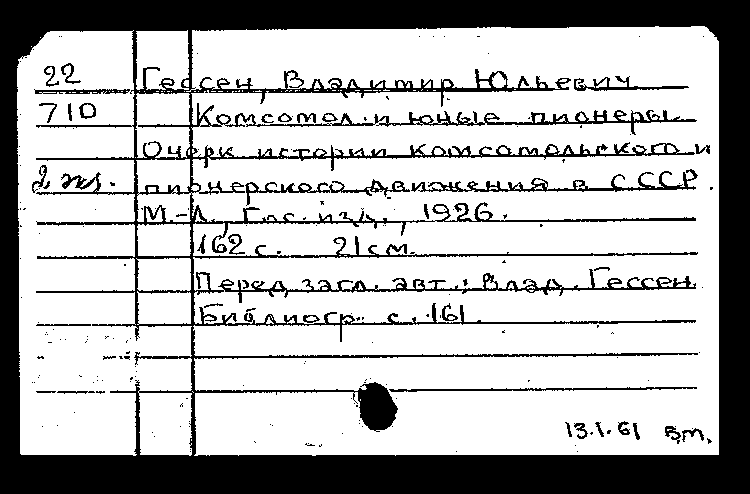 22 Гессен, Владимир Юльевич
710 Комсомол и юные пионеры.
Очерк истории комсомольского и
2 экз. пионерского движения в СССР.
М.-Л., Гос. изд., 1926.
162 с. 21 см.
Перед загл. авт.: Влад. Гессен.
Библиогр. с. 161.
13.1.61 в.т.